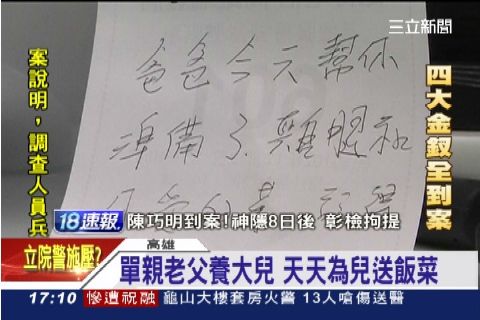 三立新聞
案說明，調查人員兵
四大金釵全到案
爸爸今天幫你
準備了雞腿和
18速報 陳巧明到案!神隱8日後 彰檢拘提
立院警施壓?
高雄
單親老父養大兒 天天為兒送飯菜
17:10 慘遭祝融 龜山大樓套房火警 13人嗆傷送醫